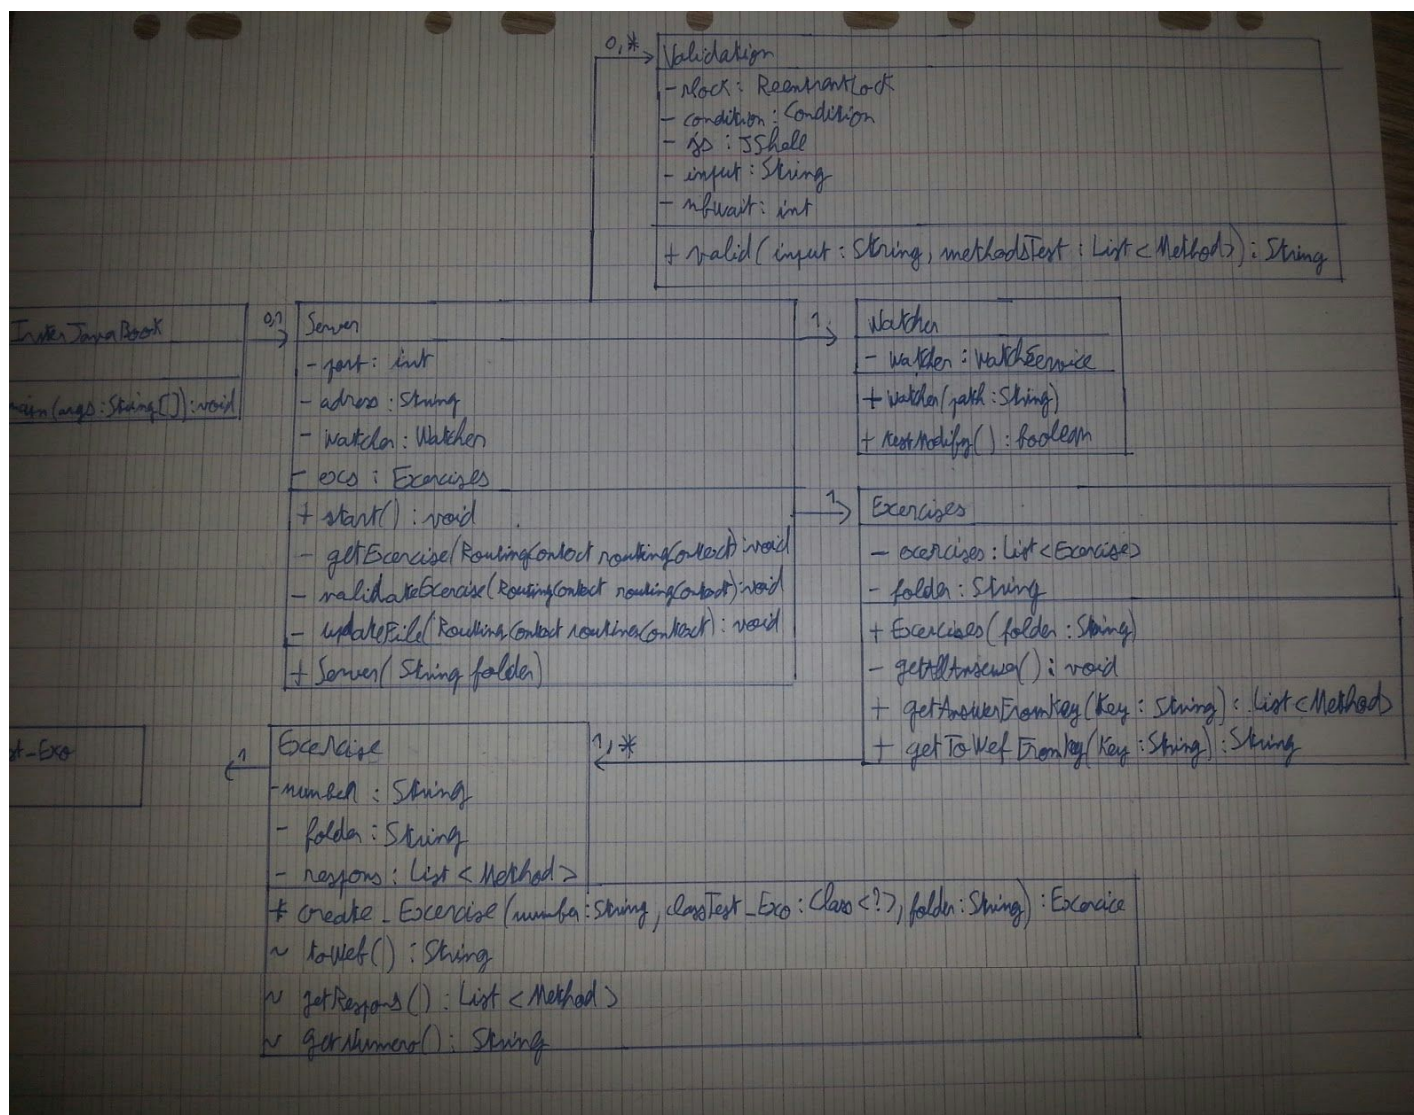 0,*
Validation
- rlock : ReentrantLock
- condition : Condition
- js : JShell
- input : String
- nbwait : int
+ valid( input : String, methodsTest : List<Method>) : String
InterJavaBook
main(args : String[]) : void
0,1
Server
- port : int
- adress : String
- watcher : Watcher
- exs : Exercises
+ start() : void
- getExercise(RoutingContext routingContext) : void
- validateExercise(RoutingContext routingContext) : void
- updateFile(RoutingContext routingContext) : void
+ Server( String folder)
1
Watcher
- watcher : WatchService
+ Watcher(path : String)
+ testModify() : boolean
1
Exercises
- exercises : List<Exercise>
- folder : String
+ Exercises( folder : String)
- getAllAnswer() : void
+ getAnswerFromKey(Key : String) : List<Method>
+ getToWebFromKey(Key : String) : String
1,*
st_Exo
1
Exercise
- number : String
- folder : String
- respons : List < Method >
+ create_Exercise(number : String, classTest_Exo : Class<?>, folder : String) : Exercice
~ toWeb() : String
~ getRespons() : List < Method >
~ getNumero() : String